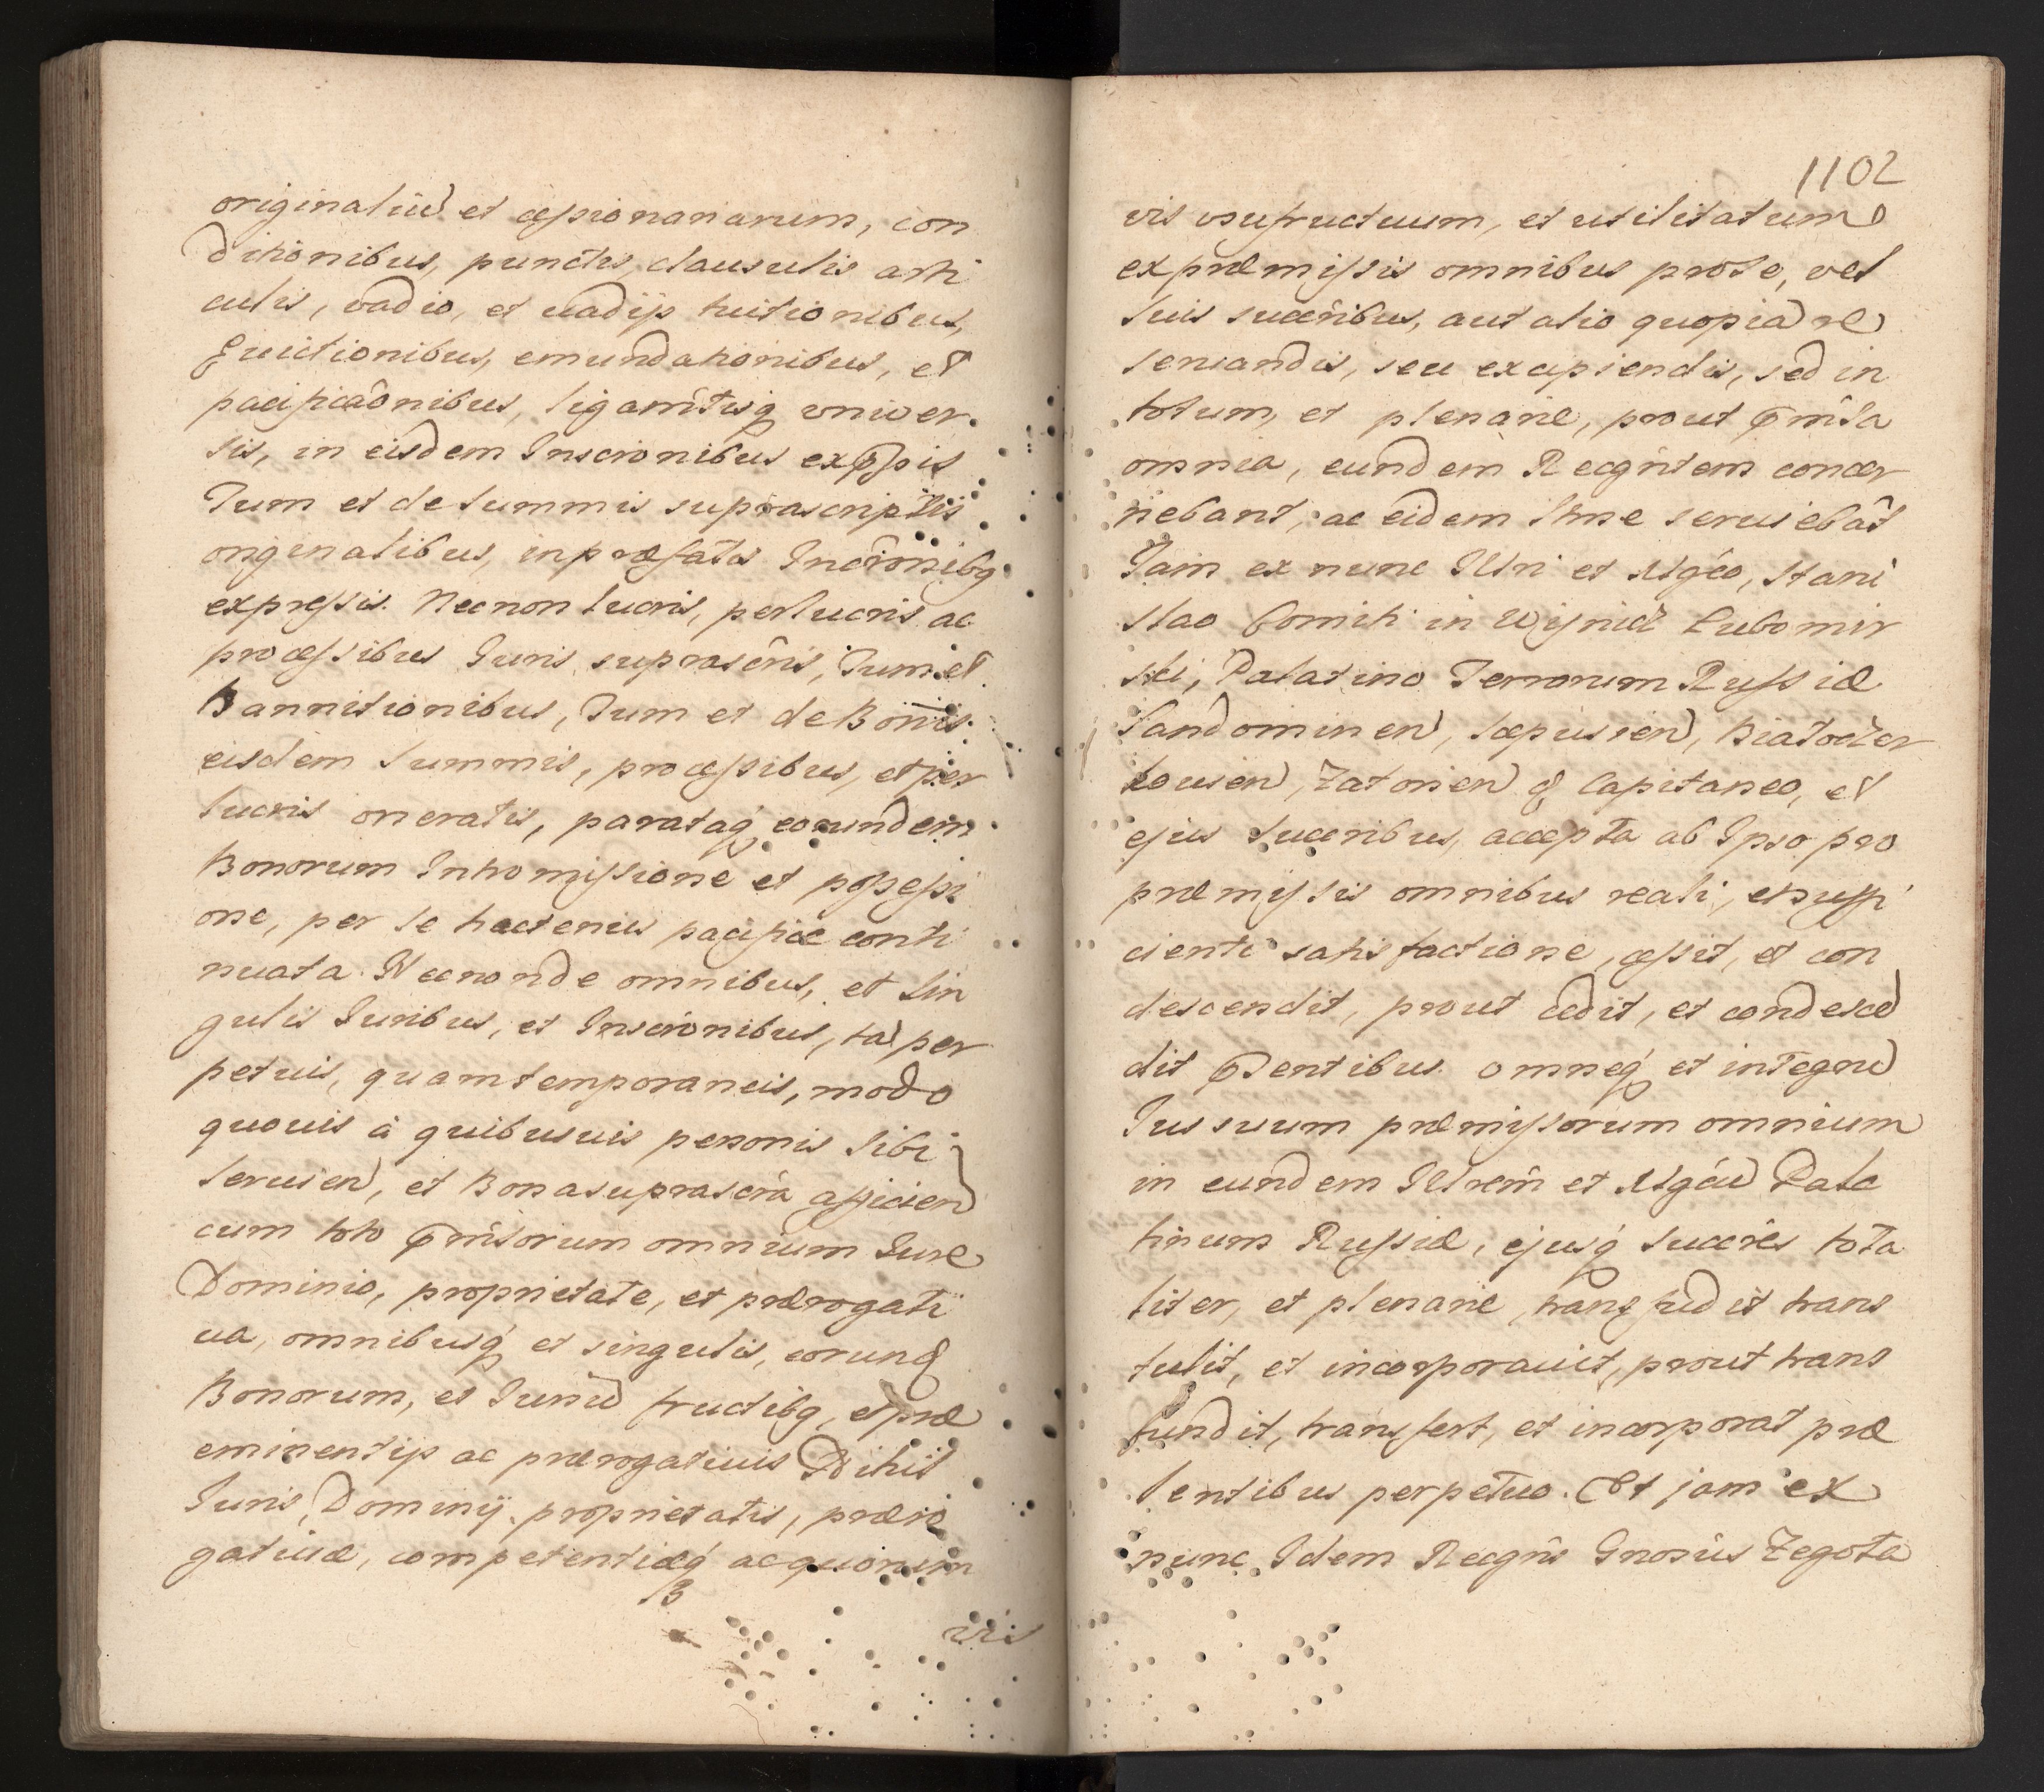 originaliũ et cessionariarum, con
ditionibus, punctis, clausulis arti
culis, vadio, et vadijs tuitionibus,
Euictionibus, emundationibus, et
pacificãonibus, ligamẽtisq̃ vniver.
sis, in eisdem Inscrionibus exp̱ssis
Tum et de summis suprascriptis
originalibus, in præfatis Incrõnibq
expressis. Necnon lucris, perlucris ac
processibus Juris suprascr̃is, Tum et
Bannitionibus, Tum et de Bonis
eisdem summis, processibus, et per
lucris oneratis, parataq̃ eorundem
Bonorum Intromissione et possessi
one, per se hactenus pacifice conti
nuata. Necnon de omnibus, et sin
gulis Juribus, et Inscrionibus, tã per
petuis, quam temporaneis, modo
quouis à quibusuis personis sibi
seruien, et Bona suprascr̃a afficien
cum toto p̱mis̃sorum omnium Jure
Dominio, proprietate, et prærogati
ua, omnibusq̃ et singulis, eorund
Bonorum, et Juriũ fructibq, et præ
eminentijs ac prærogatiuis Nihil
Juris, Dominij, proprietatis, præro
gatiuæ, competentiæq̃ ac quorum
vis
1102
vis vsufructuum, et utilitatum
ex præmissis omnibus pro se, vel
suis succr̃ibus, aut alio quopiã re
seruandis, seu excipiendis, sed in
totum, et plenarie, prout p̱miša
omnia, eundem Recgñtem concer
nebant, ac eidem Ittme seruiebãt
Jam ex nunc Illri et Mgco, Stani
slao Comiti in Wisnicz Lubomir
ski, Palatino Terrarum Russiæ
Sandomirien, Scepusien, Białocer
kouien, Zatorien & Capitaneo, et
ejus succribus, accepta ab Ipso pro
præmissis omnibus reali, et suffi
cienti satisfactione, cessit, et con
descendit, prout cedit, et condescẽ
dit p̱sentibus. omneq̃ et integrũ
Jus suum præmissorum omnium
in eundem Illrem̃ et Mgcũ Pala
tinum Russiæ, ejusq̃ succr̃es tota
liter, et plenarie, transfudit trans
tulit, et incorporauit, prout trans
fundit, transfert, et incorporat præ
sentibus perpetuo. Et jam ex
nunc Idem Recgñs Gnosus Zegota